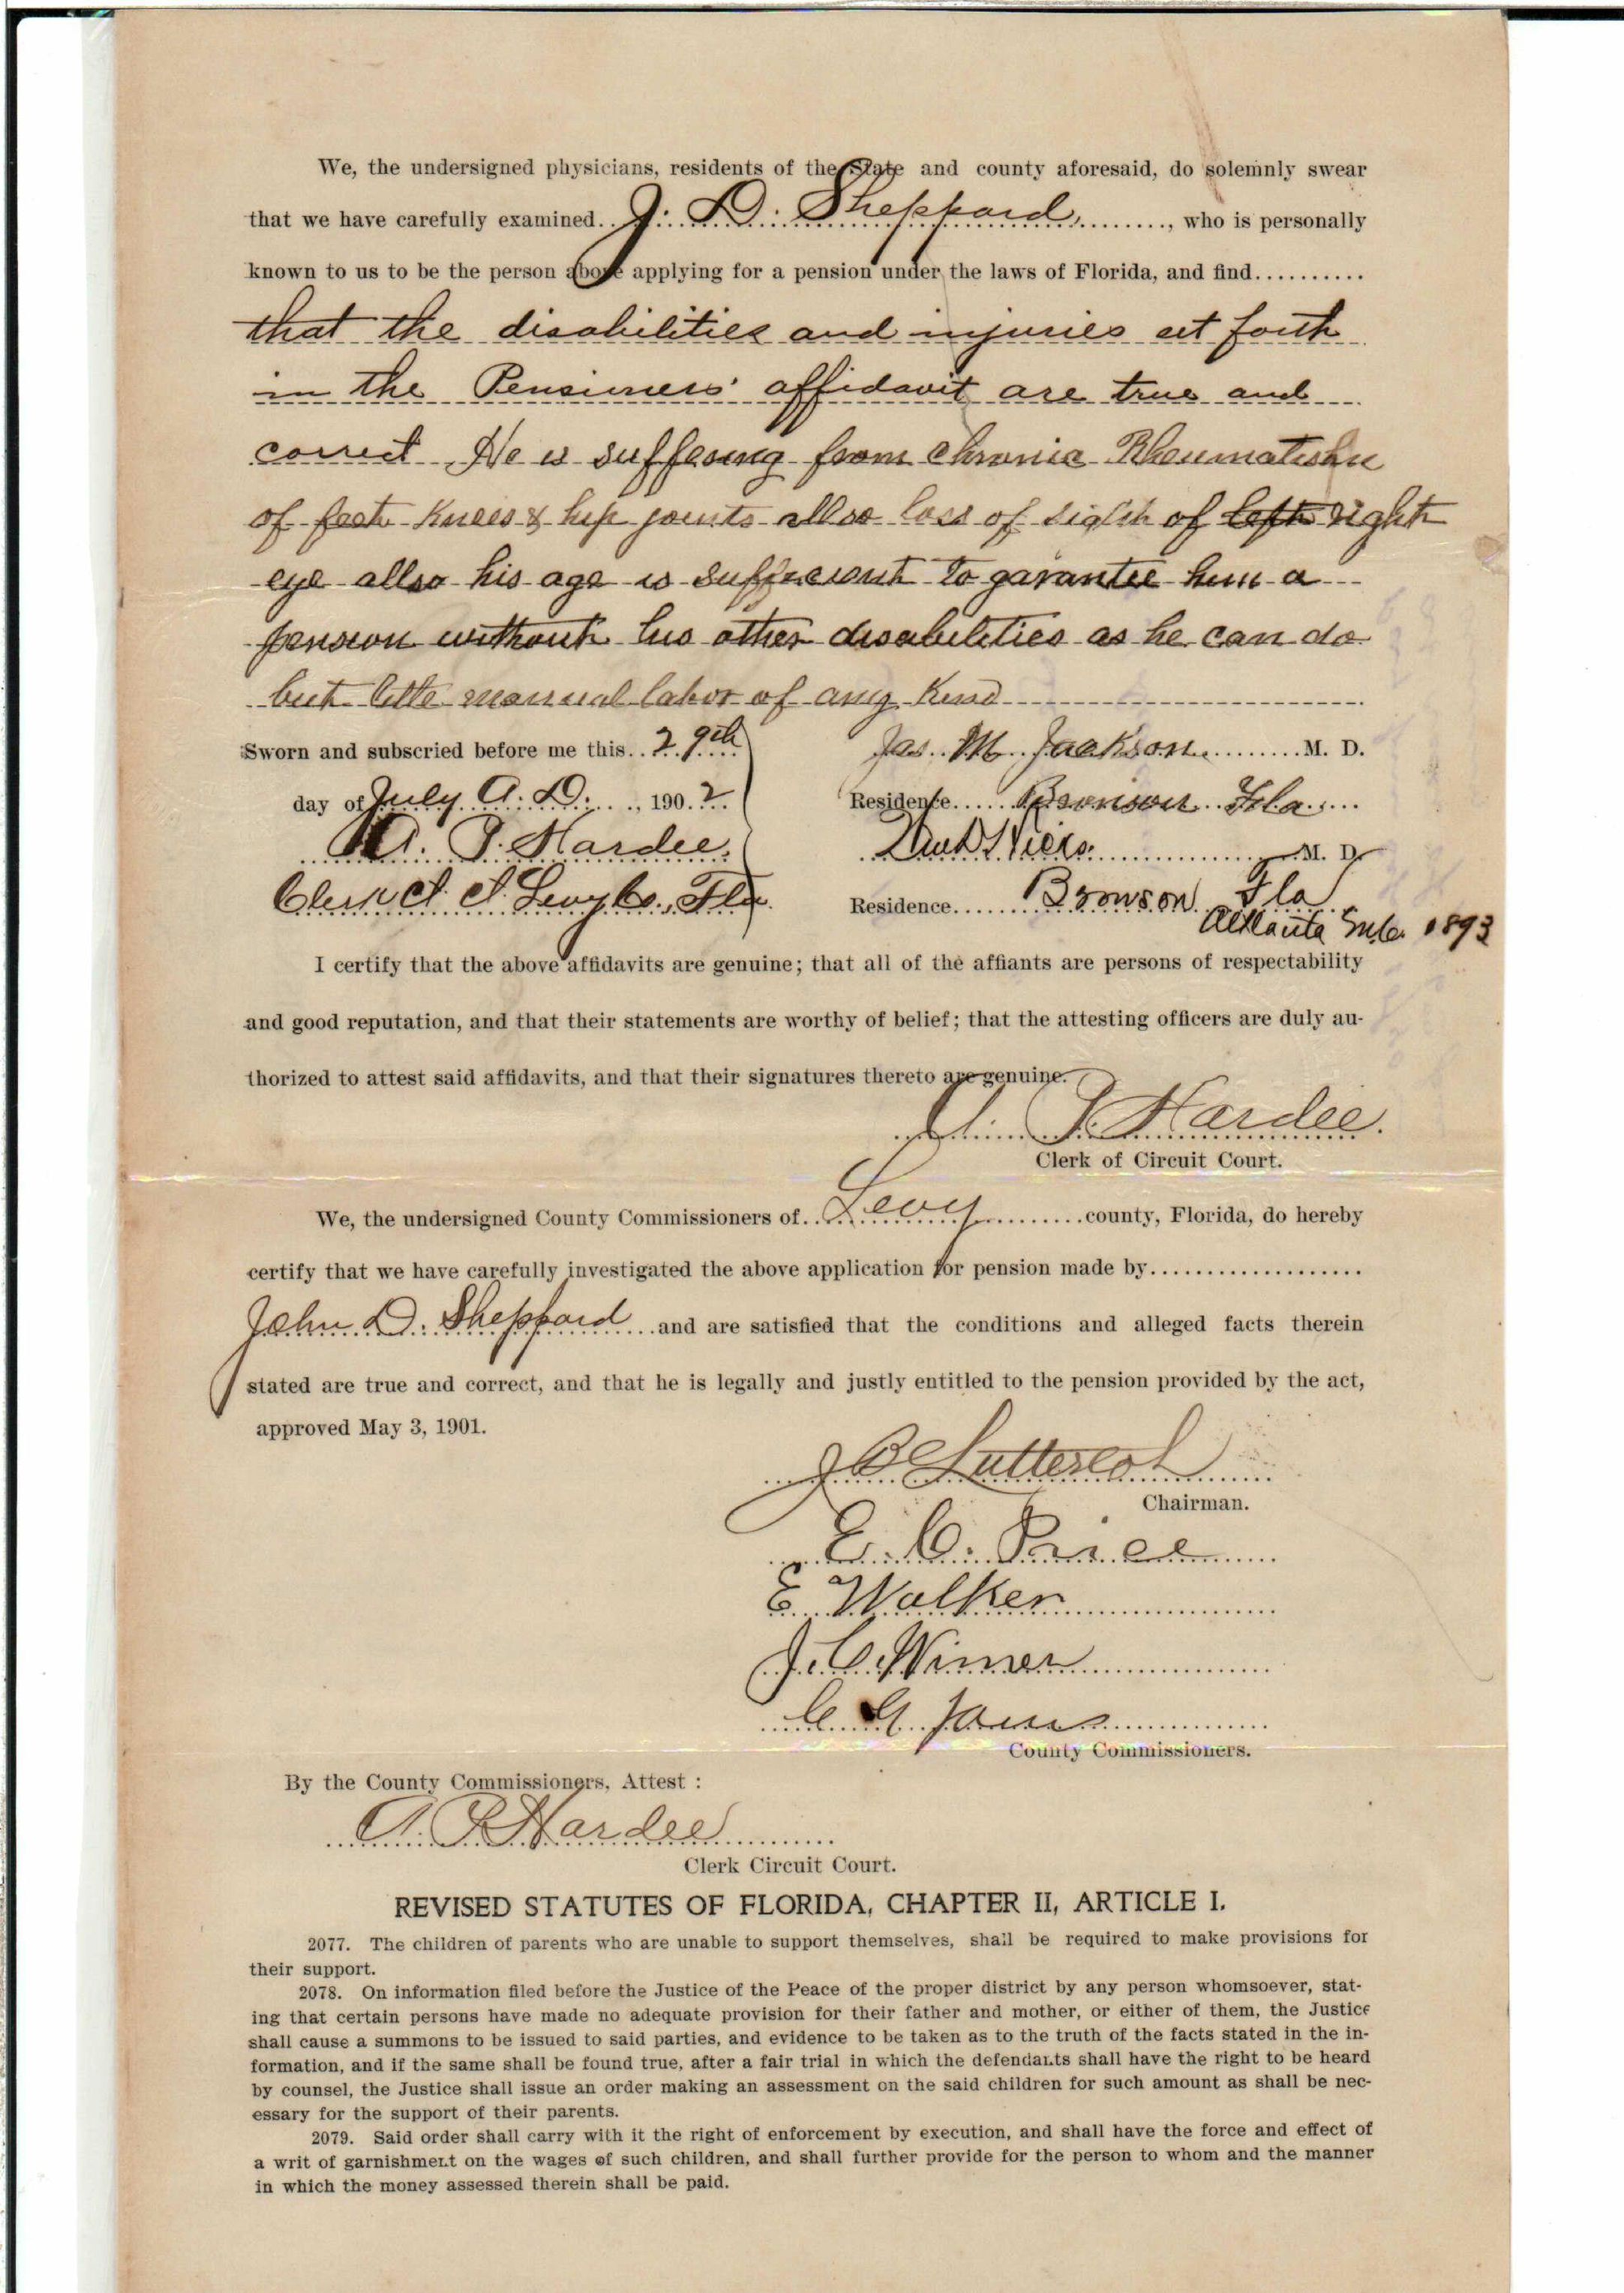 We, the undersigned physicians, residents of the State and county aforesaid, do solemnly swear
that we have carefully examined J. D. Sheppard, who is personally
known to us to be the person above applying for a pension under the laws of Florida, and find
that the disabilities and injuries set forth
in the Pensioners' affidavit are true and
correct He is suffering from chronic Rheumatism
of feet Knees & hip joints allso loss of sight of left right
eye allso his age is sufficient to garantee him a
pension without his other disabilities as he can do
but little manual labor of any Kind
Sworn and subscried before me this 29th
Jas. M. Jackson M. D.
day of July A. D., 1902
Residence Bronson Fla
A. P. Hardee
M. D.
Clerk Ct. Ct. Levy Co., Fla
Residence Bronson Fla
1893
I certify that the above affidavits are genuine; that all of the affiants are persons of respectability
and good reputation, and that their statements are worthy of belief; that the attesting officers are duly au-
thorized to attest said affidavits, and that their signatures thereto are genuine.
A. P. Hardee.
Clerk of Circuit Court.
We, the undersigned County Commissioners of Levy county, Florida, do hereby
certify that we have carefully investigated the above application for pension made by
John D. Sheppard and are satisfied that the conditions and alleged facts therein
stated are true and correct, and that he is legally and justly entitled to the pension provided by the act,
approved May 3, 1901.
J B Lutterloh
Chairman.
E. C. Price
E Walker
J. C. Wimer
C G Janes
County Commissioners.
By the County Commissioners, Attest :
A. P. Hardee
Clerk Circuit Court.
REVISED STATUTES OF FLORIDA, CHAPTER II, ARTICLE I.
2077. The children of parents who are unable to support themselves, shall be required to make provisions for
their support.
2078. On information filed before the Justice of the Peace of the proper district by any person whomsoever, stat-
ing that certain persons have made no adequate provision for their father and mother, or either of them, the Justice
shall cause a summons to be issued to said parties, and evidence to be taken as to the truth of the facts stated in the in-
formation, and if the same shall be found true, after a fair trial in which the defendants shall have the right to be heard
by counsel, the Justice shall issue an order making an assessment on the said children for such amount as shall be nec-
essary for the support of their parents.
2079. Said order shall carry with it the right of enforcement by execution, and shall have the force and effect of
a writ of garnishment on the wages of such children, and shall further provide for the person to whom and the manner
in which the money assessed therein shall be paid.